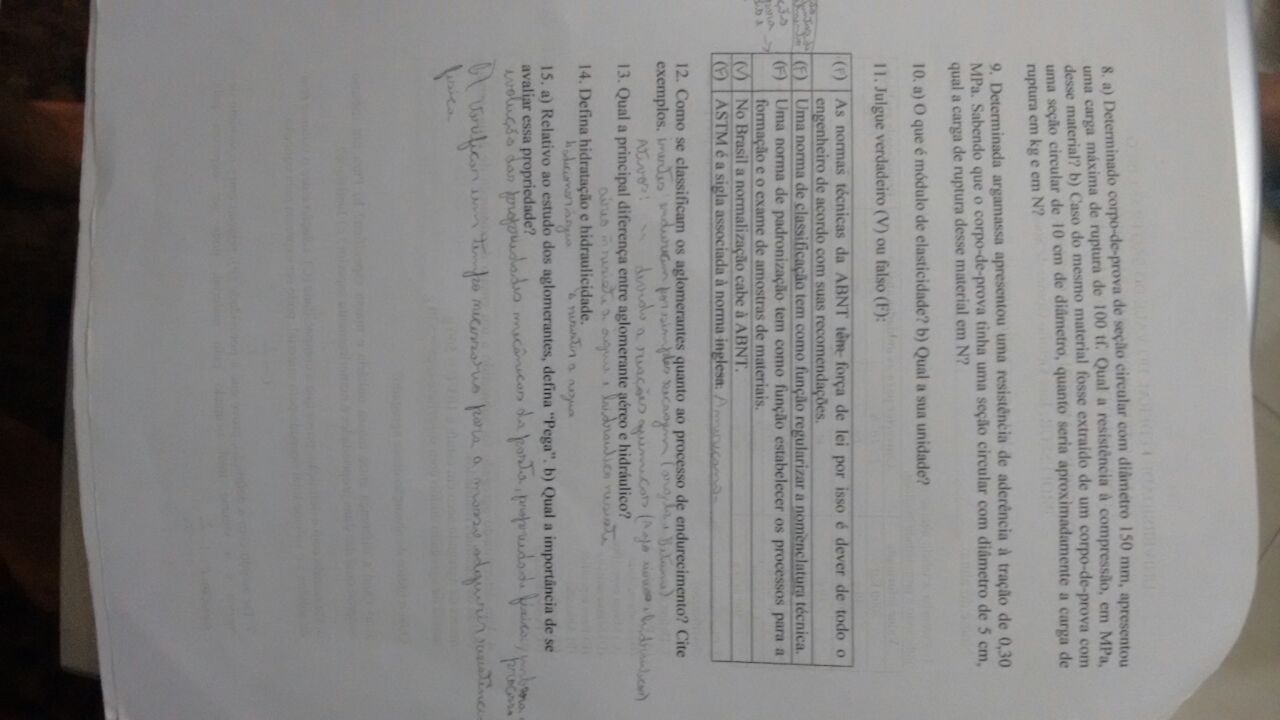 8. a) Determinado corpo-de-prova de seção circular com diâmetro 150 mm, apresentou
uma carga máxima de ruptura de 100 tf. Qual a resistência à compressão, em MPa,
desse material? b) Caso do mesmo material fosse extraído de um corpo-de-prova com
uma seção circular de 10 cm de diâmetro, quanto seria aproximadamente a carga de
ruptura em kg e em N?
9. Determinada argamassa apresentou uma resistência de aderência à tração de 0,30
MPa. Sabendo que o corpo-de-prova tinha uma seção circular com diâmetro de 5 cm,
qual a carga de ruptura desse material em N?
10. a) O que é módulo de elasticidade? b) Qual a sua unidade?
11. Julgue verdadeiro (V) ou falso (F):
(F) As normas técnicas da ABNT têm força de lei por isso é dever de todo o
engenheiro de acordo com suas recomendações.
(F) Uma norma de classificação tem como função regularizar a nomenclatura técnica.
(F) Uma norma de padronização tem como função estabelecer os processos para a
formação e o exame de amostras de materiais.
(V) No Brasil a normalização cabe à ABNT.
(F) ASTM é a sigla associada à norma inglesa. Americana
12. Como se classificam os aglomerantes quanto ao processo de endurecimento? Cite
exemplos. inertes endurecem por simples secagem (argila, Betume)
Ativos: " devido a reações químicas (
13. Qual a principal diferença entre aglomerante aéreo e hidráulico?
resiste a água e hidraulico resiste
14. Defina hidratação e hidraulicidade.
é resistir a agua
15. a) Relativo ao estudo dos aglomerantes, defina "Pega". b) Qual a importância de se
avaliar essa propriedade?
evolução das propriedades mecânicas da pasta, propriedade física,
b) Verificar um tempo necessário para a massa adquirir resistência
física.